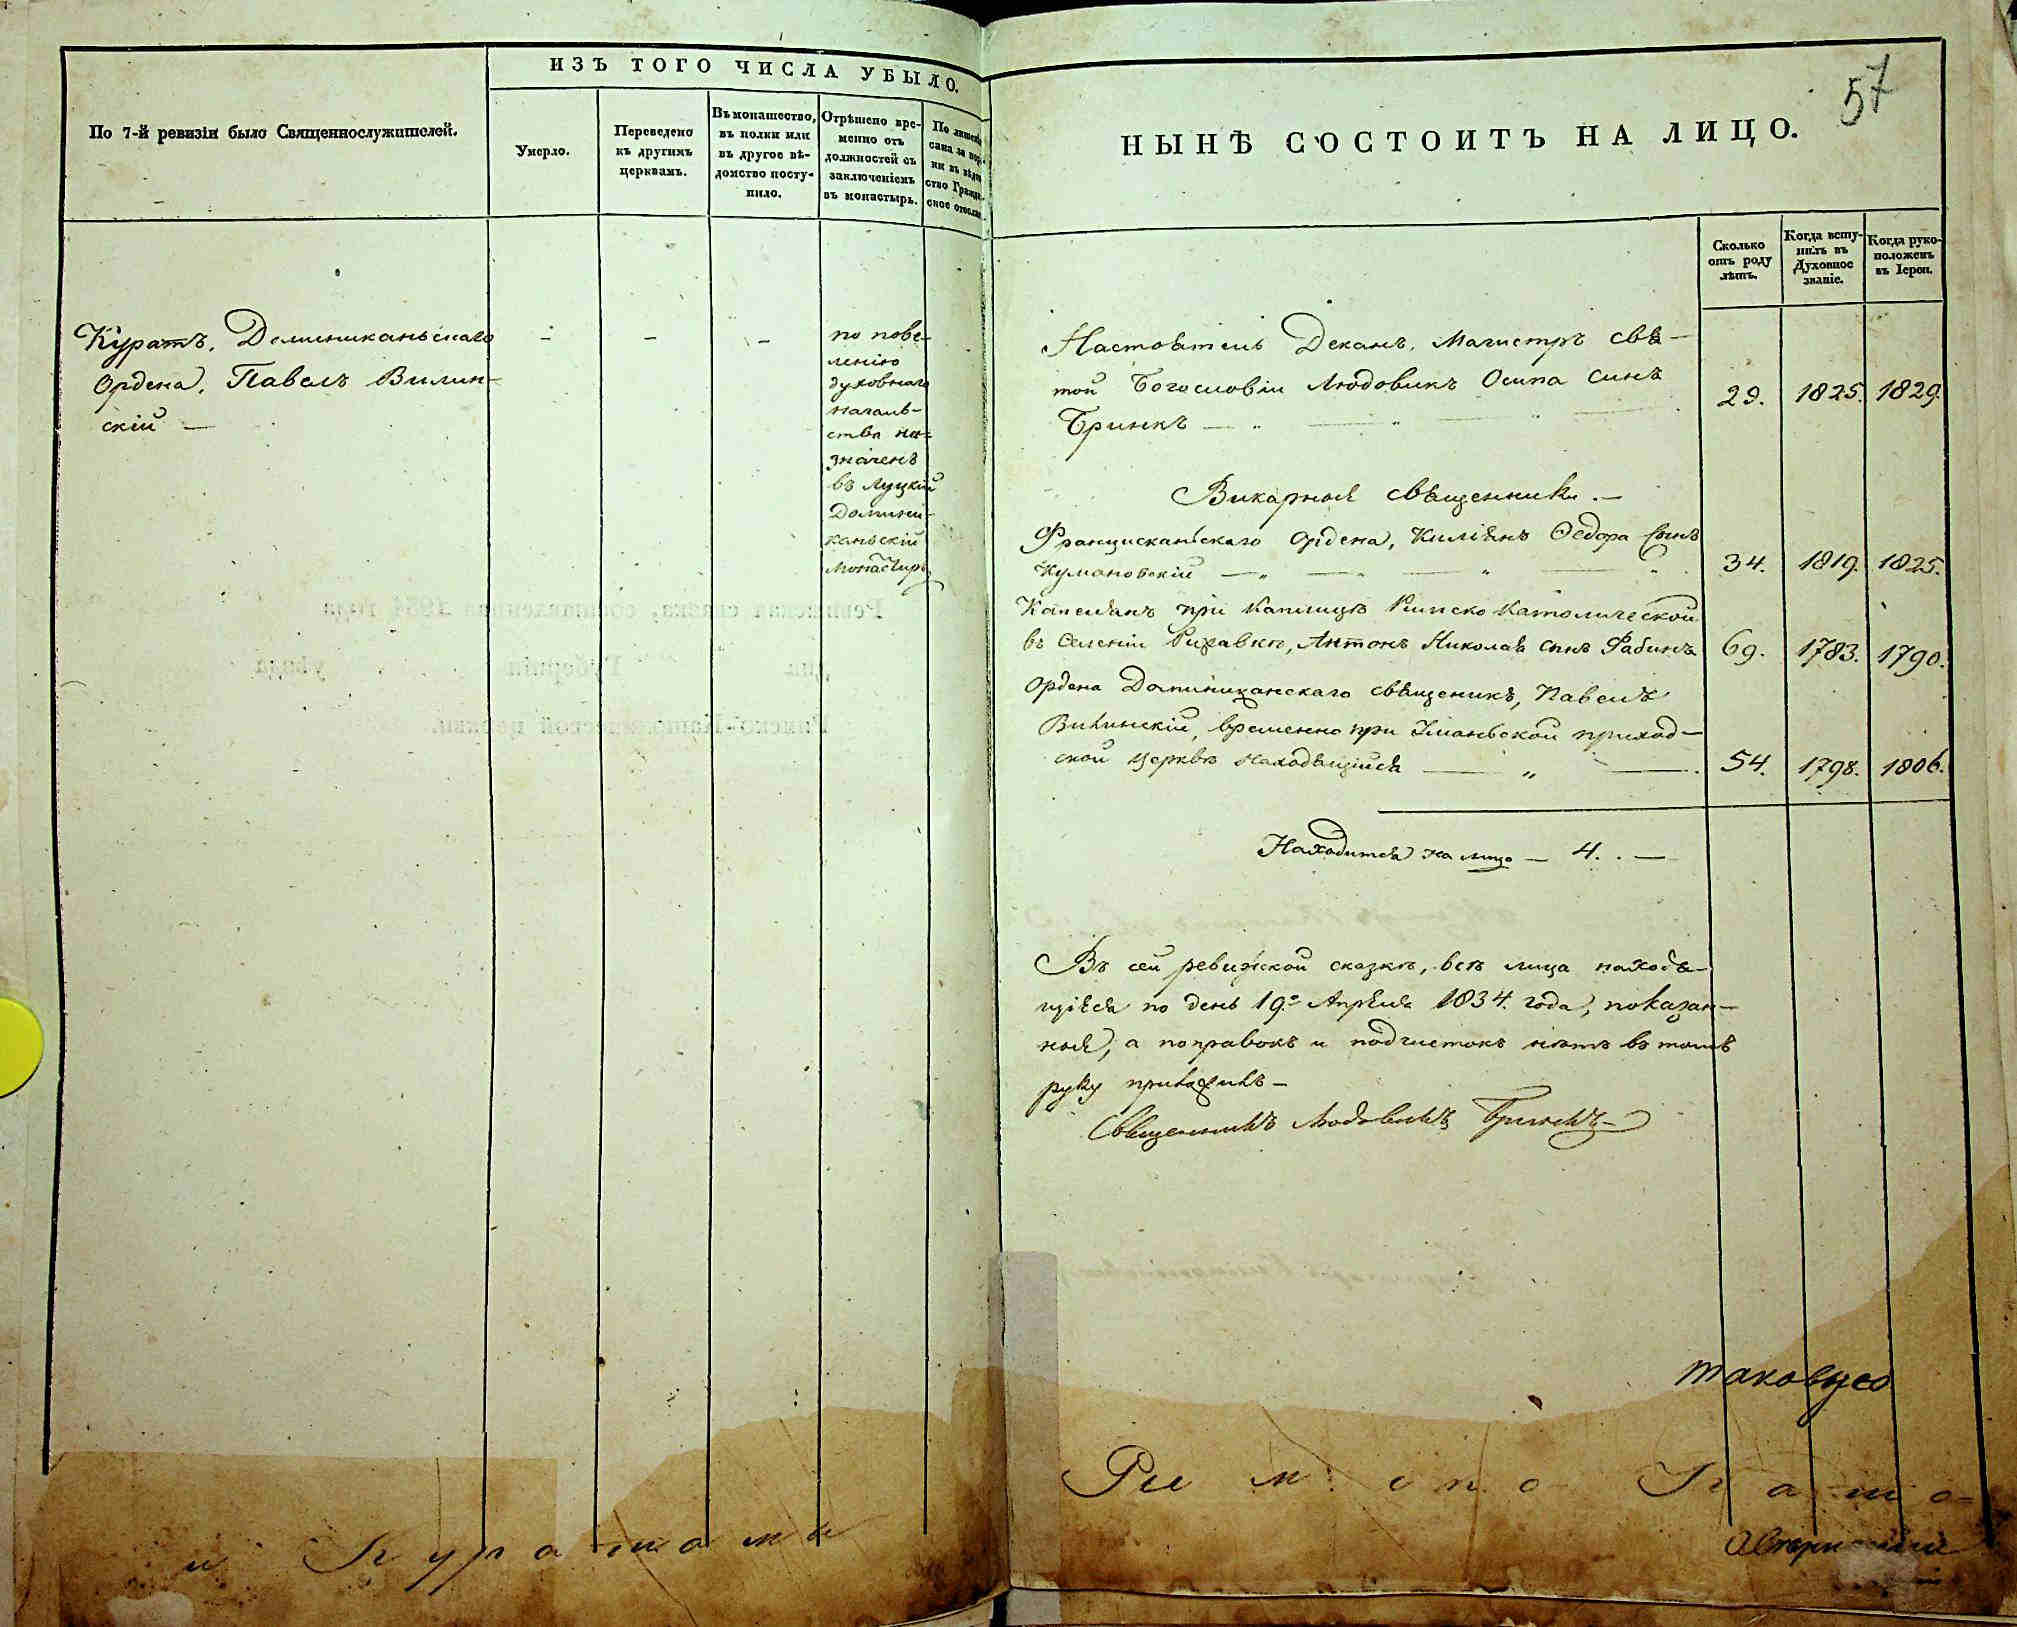 57
ИЗЪ ТОГО ЧИСЛА УБЫЛО.
По 7-й ревизіи было Священнослужителей.
Умерло.
Переведено
къ другимъ
церквамъ.
Въ монашество,
въ полки или
въ другое вѣ-
домство посту-
пило.
Отрѣшено вре-
менно отъ
должностей съ
заключеніемъ
въ монастырь.
По лишені
сана за
ки въ вѣдом
ство Гражд
ское отосла
Куратъ, Доминиканьскаго
Ордена, Павелъ Вилин-
скій —
по пове-
лѣнію
духовнаго
началь-
ства на-
значенъ
въ Луцкій
Домини-
каньскій
Монастырь
НЫНѢ СОСТОИТЪ НА ЛИЦО.
Сколько
отъ роду
лѣтъ.
Когда всту-
пилъ въ
Духовное
званіе.
Когда руко-
положенъ
въ Іереи.
Настоятель Деканъ, Магистръ свя-
той Богословіи Людовикъ Осипа синъ
Бринкъ — 29. 1825. 1829.
Викарныя священники. —
Францисканьскаго Ордена, Киліянъ Ѳедора сынъ
Кумановскій — 34. 1819. 1825.
Капелянъ при Каплицѣ Римско Католической
въ Селеніи Рижавкѣ, Антонъ Николая сынъ Фабинъ 69. 1783. 1790.
Ордена Доминиканскаго священикъ, Павелъ
Вилинскій, временно при Уманьской приход-
ской церквѣ находящійся — 54. 1798. 1806.
Находится на лицо — 4. —
Въ сей ревижской сказкѣ, всѣ лица находя-
щіяся по день 19.º Апрѣля 1834. года, показан-
ныя, а поправокъ и подчистокъ нѣтъ въ томъ
руку приложилъ —
Священникъ Людовикъ Бринкъ
таковую
Римско Като-
и Куратами